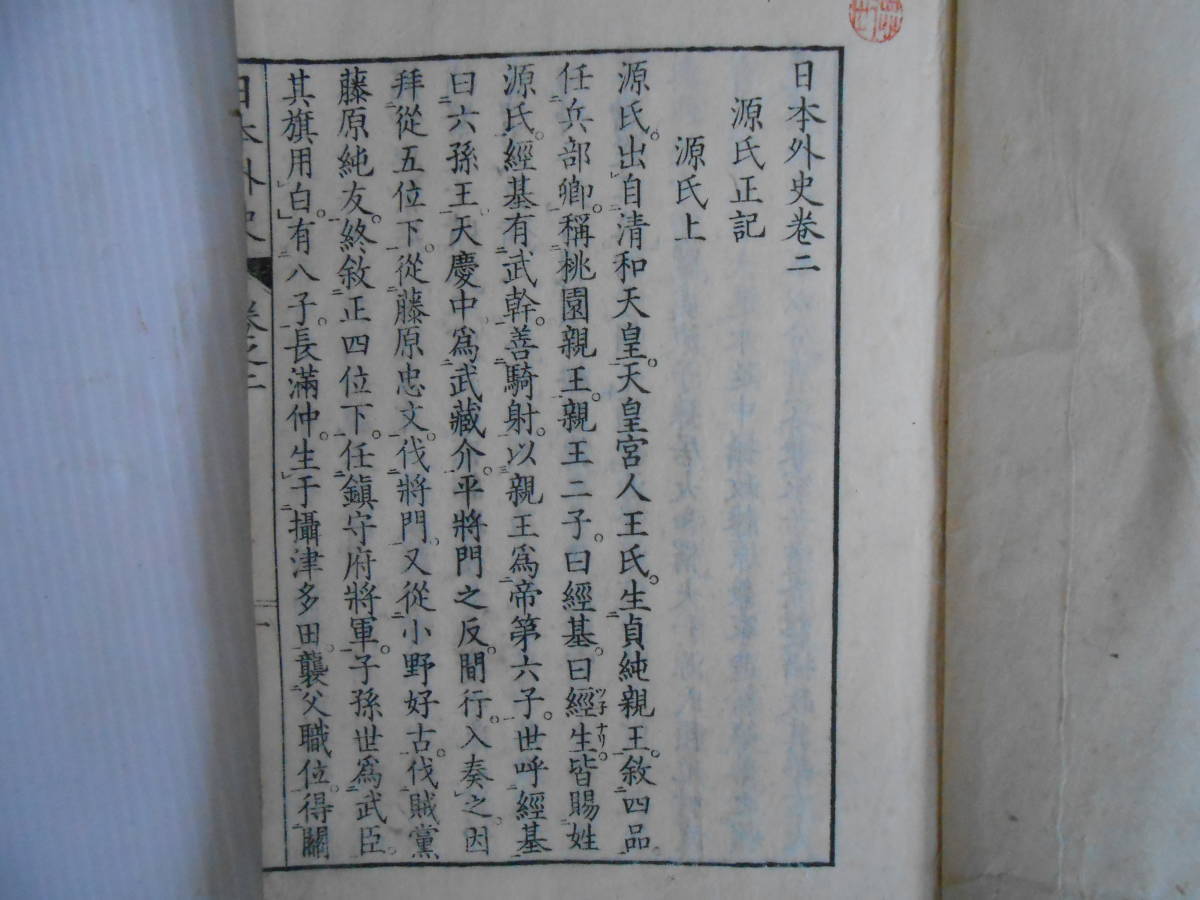 日本外史卷二
源氏正記
源氏上
源氏。出自清和天皇。天皇宮人王氏。生貞純親王。敘四品
任兵部卿。稱桃園親王。親王二子。曰經基。曰經生。皆賜姓
源氏。經基有武幹。善騎射。以親王爲帝第六子。世呼經基
曰六孫王。天慶中爲武藏介。平將門之反。間行。入奏之。因
拜從五位下。從藤原忠文。伐將門。又從小野好古。伐賊黨
藤原純友。終敘正四位下。任鎮守府將軍。子孫世爲武臣。
其旗用白。有八子。長滿仲。生于攝津多田。襲父職位。得關
日本外史 卷之二 一